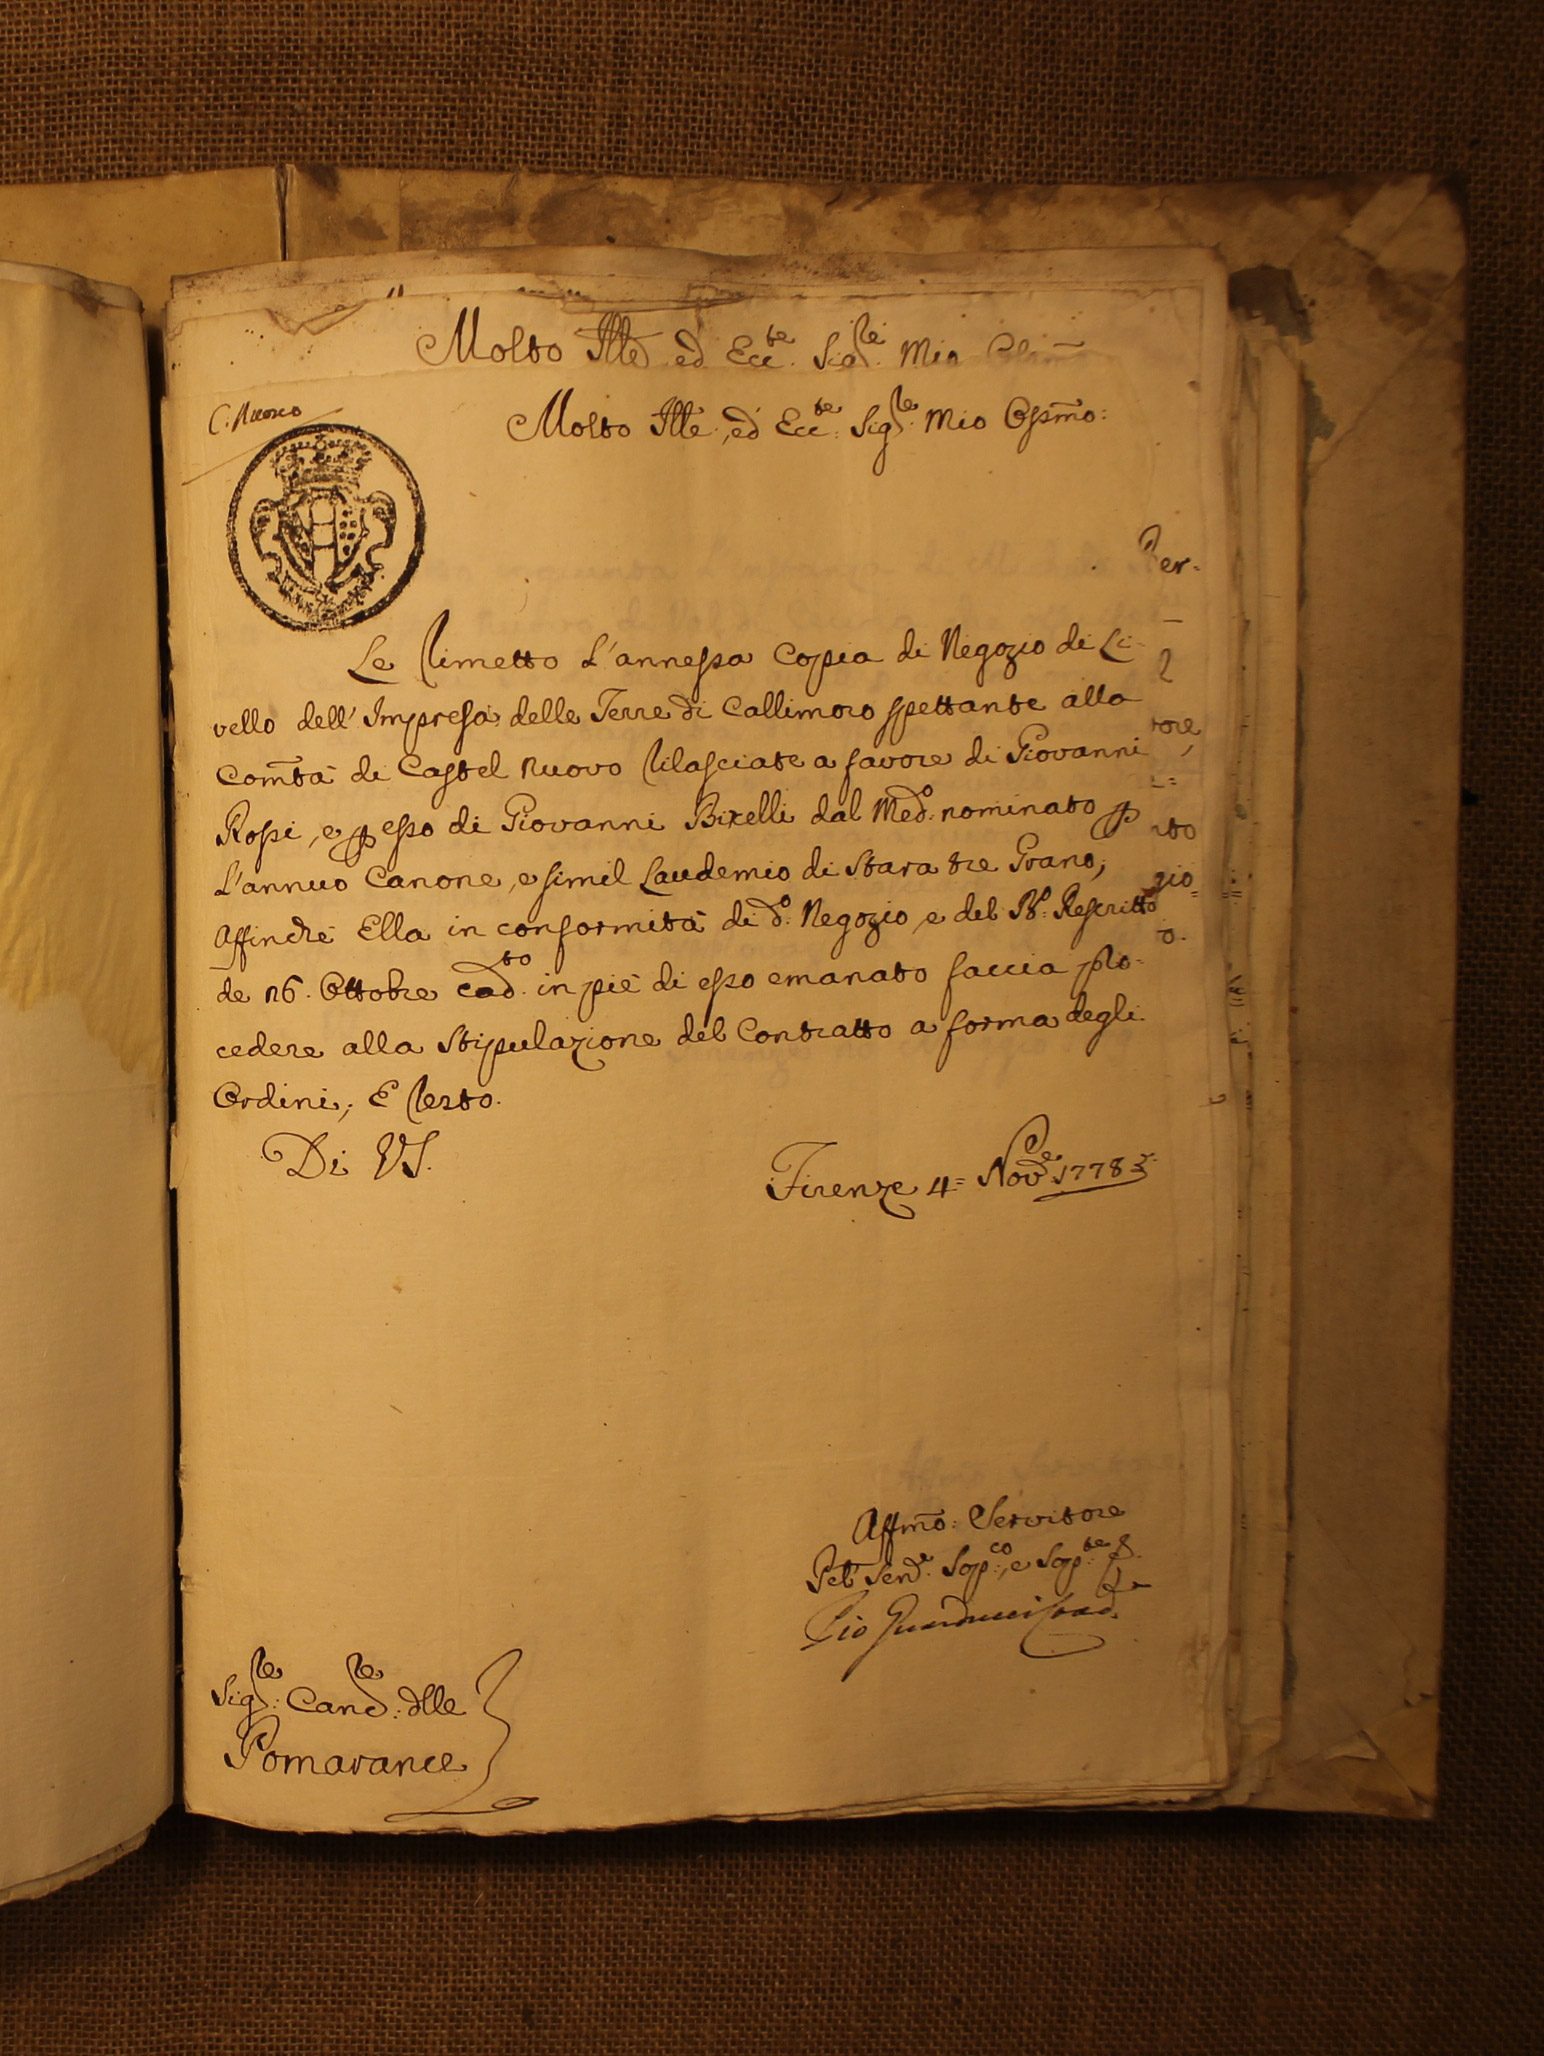 Molto Ill.e ed Ecc.te Sig.re Mio
C. Nuovo
Molto Ill.e, ed Ecc.te Sig.re Mio Oss.mo:
Per-
Le rimetto l'annessa Copia di Negozio di Li-
vello dell'Impresa delle Terre di Callimoro spettante alla
Com.tà di Castel nuovo rilasciate a favore di Giovanni
Rossi, e p esso di Giovanni Bixelli dal Med.o nominato p
L'annuo Canone, e simil Laudemio di Stara tre Grano,
Affinchè Ella in conformità di d.o Negozio, e del B.o Rescritto
de 26. Ottobre cad.to in piè di esso emanato faccia pro-
cedere alla Stipulazione del Contratto a forma degli
Ordini; E resto.
Di VS.
Firenze 4= Nov.re 1778
Aff.mo: Servitore
Pel Send.e Sop.co, e Sop.te
Pio Guarducci
Sig.re: Canc.re: dlle
Pomarance